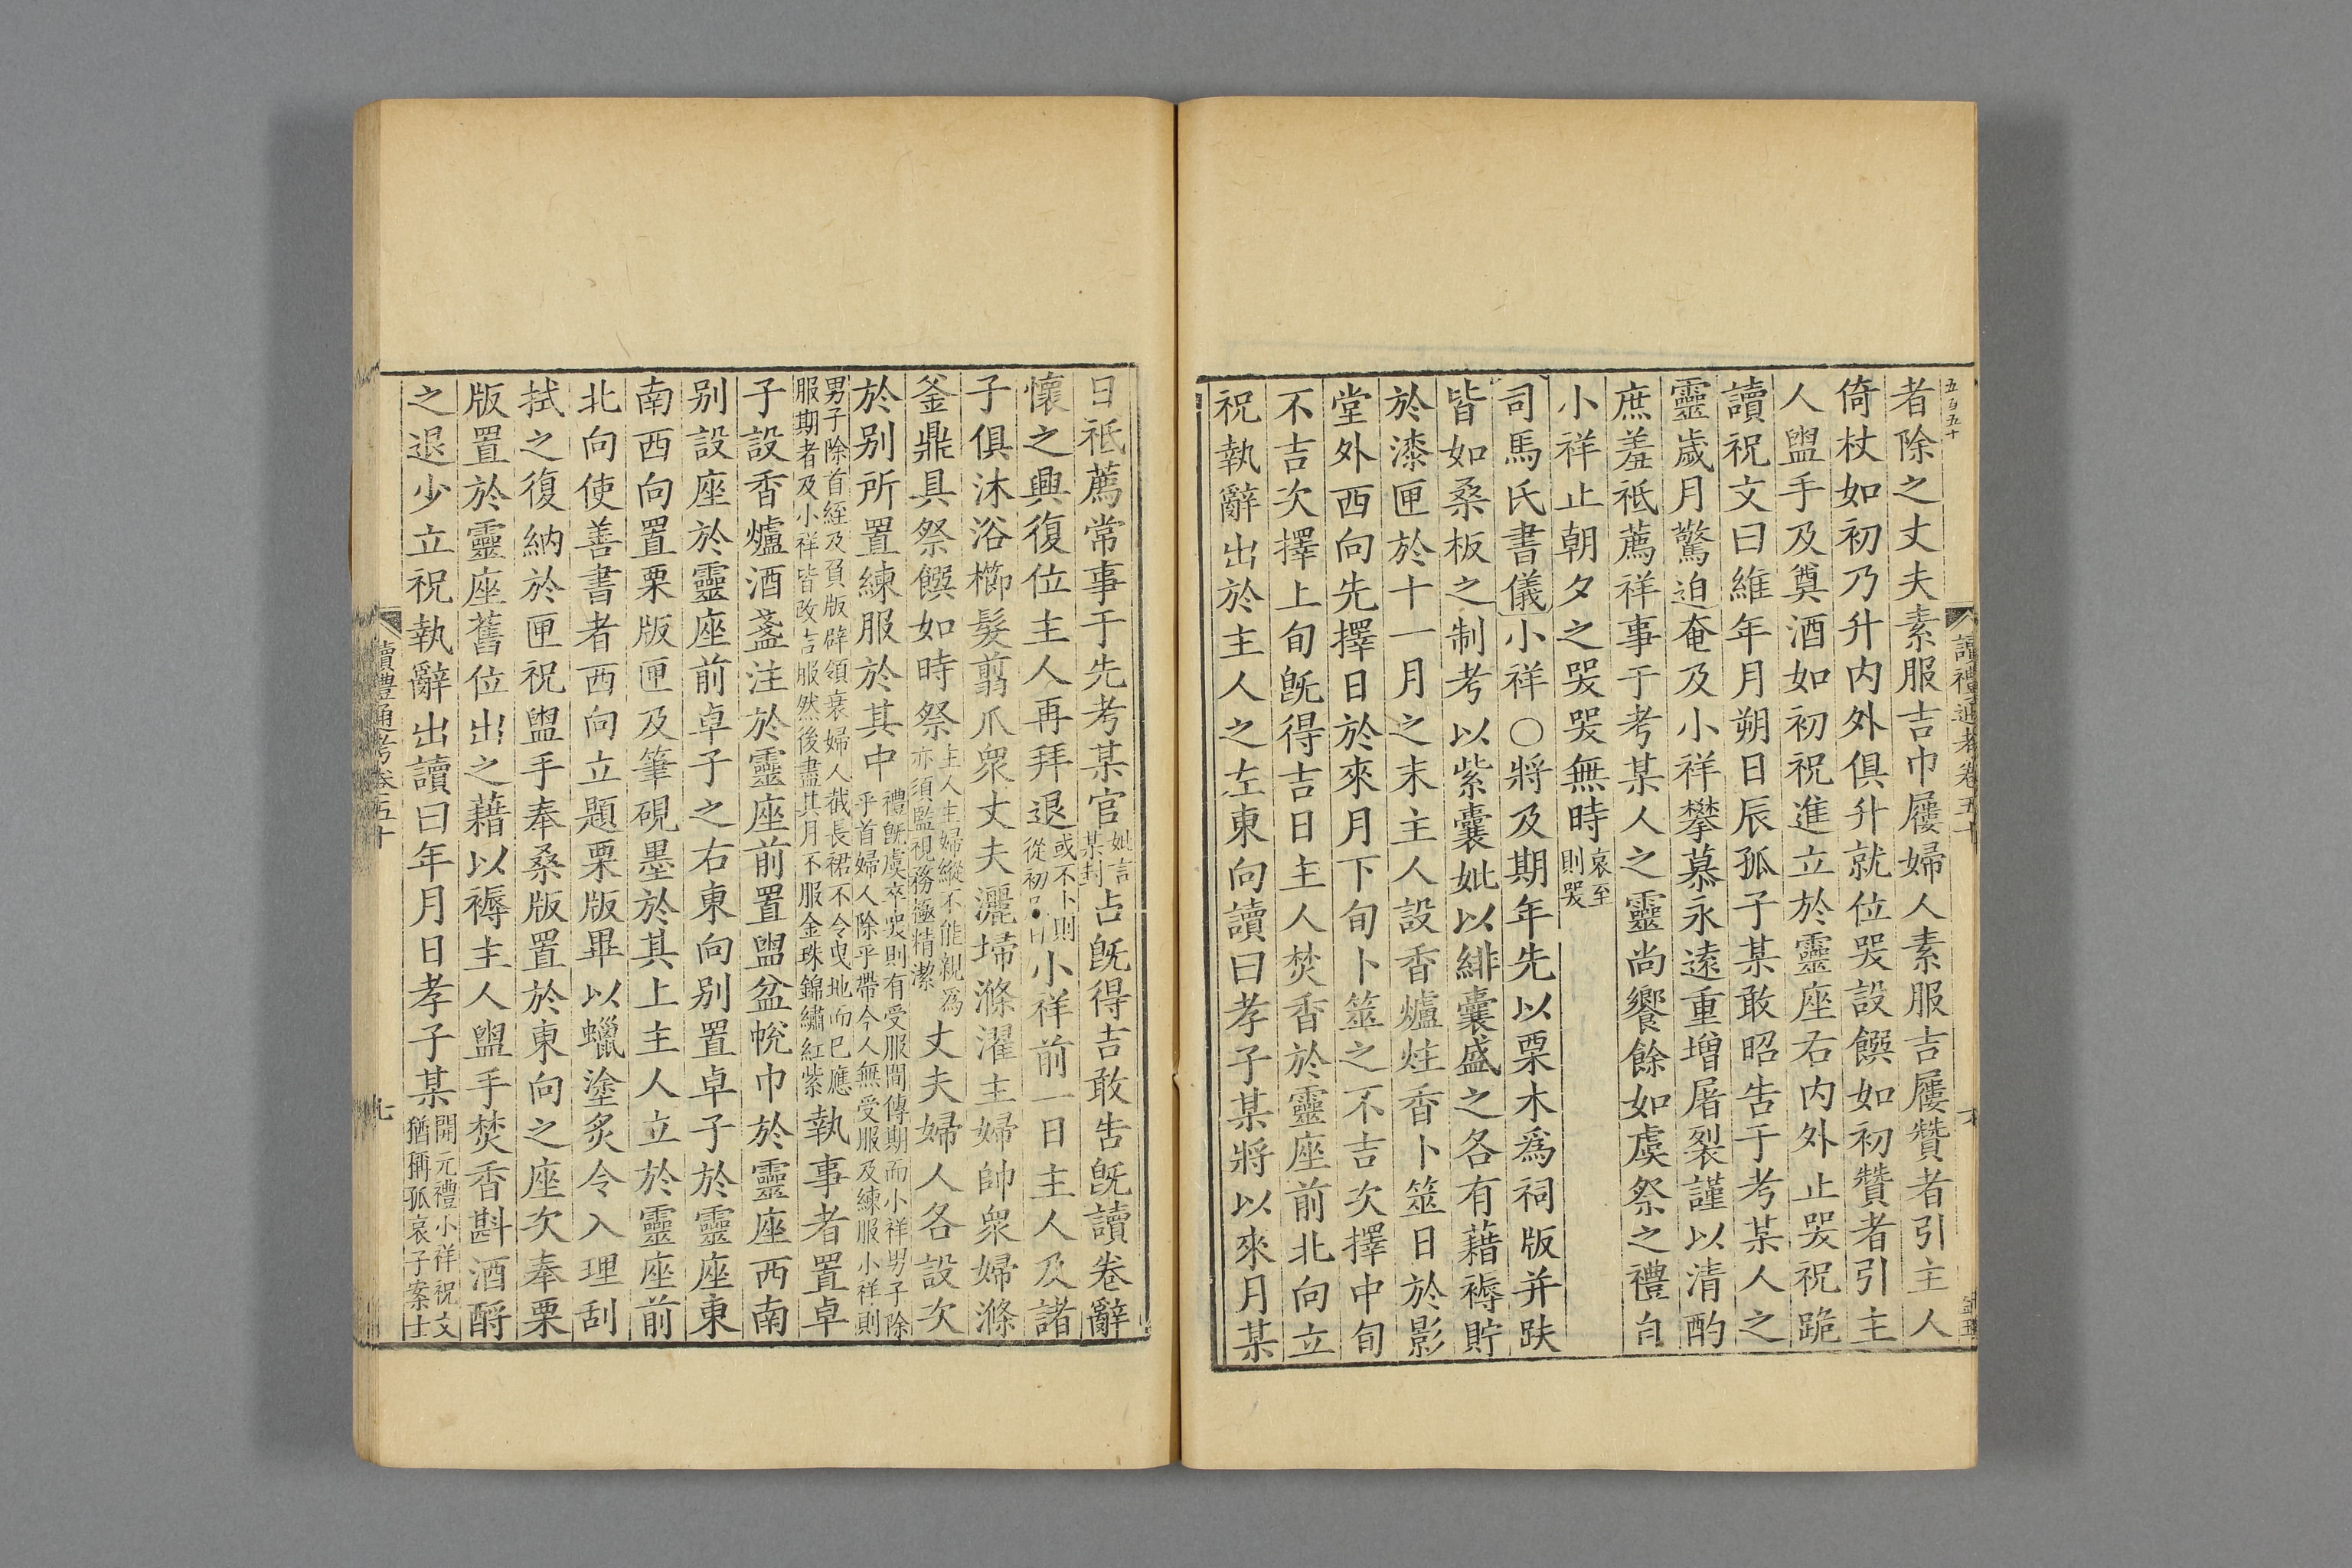 五百五十
讀禮通考卷五十
者除之丈夫素服吉巾屨婦人素服吉屨贊者引主人
倚杖如初乃升内外俱升就位哭設饌如初贊者引主
人盥手及奠酒如初祝進立於靈座右内外止哭祝跪
讀祝文曰維年月朔日辰孤子某敢昭告于考某人之
靈歲月驚迫奄及小祥攀慕永遠重增屠裂謹以清酌
庶羞祗薦祥事于考某人之靈尚饗餘如虞祭之禮自
小祥止朝夕之哭哭無時哀至則哭
司馬氏書儀小祥〇將及期年先以栗木爲祠版并趺
皆如桑板之制考以紫囊妣以緋囊盛之各有藉褥貯
於漆匣於十一月之末主人設香爐炷香卜筮日於影
堂外西向先擇日於來月下旬卜筮之不吉次擇中旬
不吉次擇上旬旣得吉日主人焚香於靈座前北向立
祝執辭出於主人之左東向讀曰孝子某將以來月某
日祗薦常事于先考某官妣言某封占旣得吉敢告旣讀卷辭
懷之興復位主人再拜退或不卜則從初日小祥前一日主人及諸
子俱沐浴櫛髮翦爪衆丈夫灑埽滌濯主婦帥衆婦滌
釜鼎具祭饌如時祭主人主婦縱不能親爲亦須監視務極精潔丈夫婦人各設次
於别所置練服於其中禮旣虞卒哭則有受服間傳期而小祥男子除乎首婦人除乎帶今人無受服及練服小祥則
男子除首絰及負版辟領衰婦人截長裙不令曳地而已應服期者及小祥皆改吉服然後盡其月不服金珠錦繡紅紫執事者置卓
子設香爐酒盞注於靈座前置盥盆帨巾於靈座西南
别設座於靈座前卓子之右東向别置卓子於靈座東
南西向置栗版匣及筆硯墨於其上主人立於靈座前
北向使善書者西向立題栗版畢以蠟塗炙令入理刮
拭之復納於匣祝盥手奉桑版置於東向之座次奉栗
版置於靈座舊位出之藉以褥主人盥手焚香斟酒酹
之退少立祝執辭出讀曰年月日孝子某開元禮小祥祝文猶稱孤哀子案士
讀禮通考卷五十
七